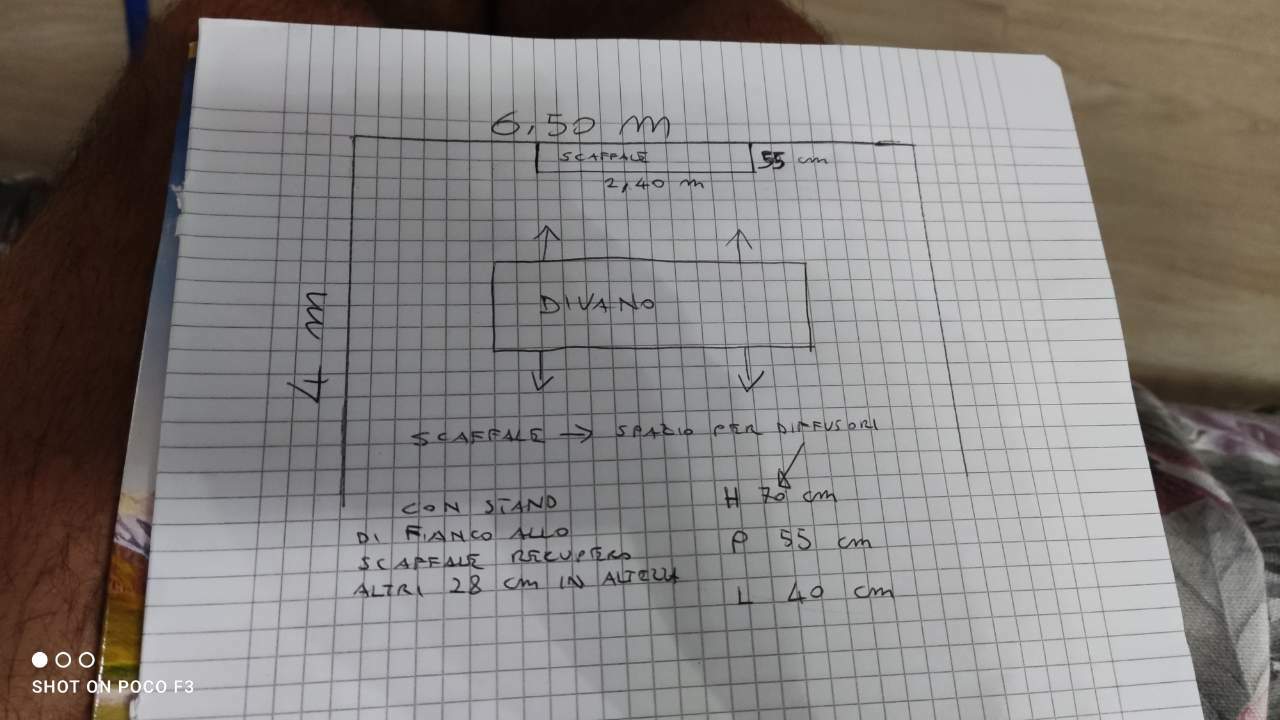 6,50 m
SCAFFALE
55 cm
2,40 m
DIVANO
4 m
SCAFFALE → SPAZIO PER DIFFUSORI
CON STAND
DI FIANCO ALLO
SCAFFALE RECUPERO
ALTRI 28 CM IN ALTEZZA
H 70 cm
P 55 cm
L 40 cm
SHOT ON POCO F3